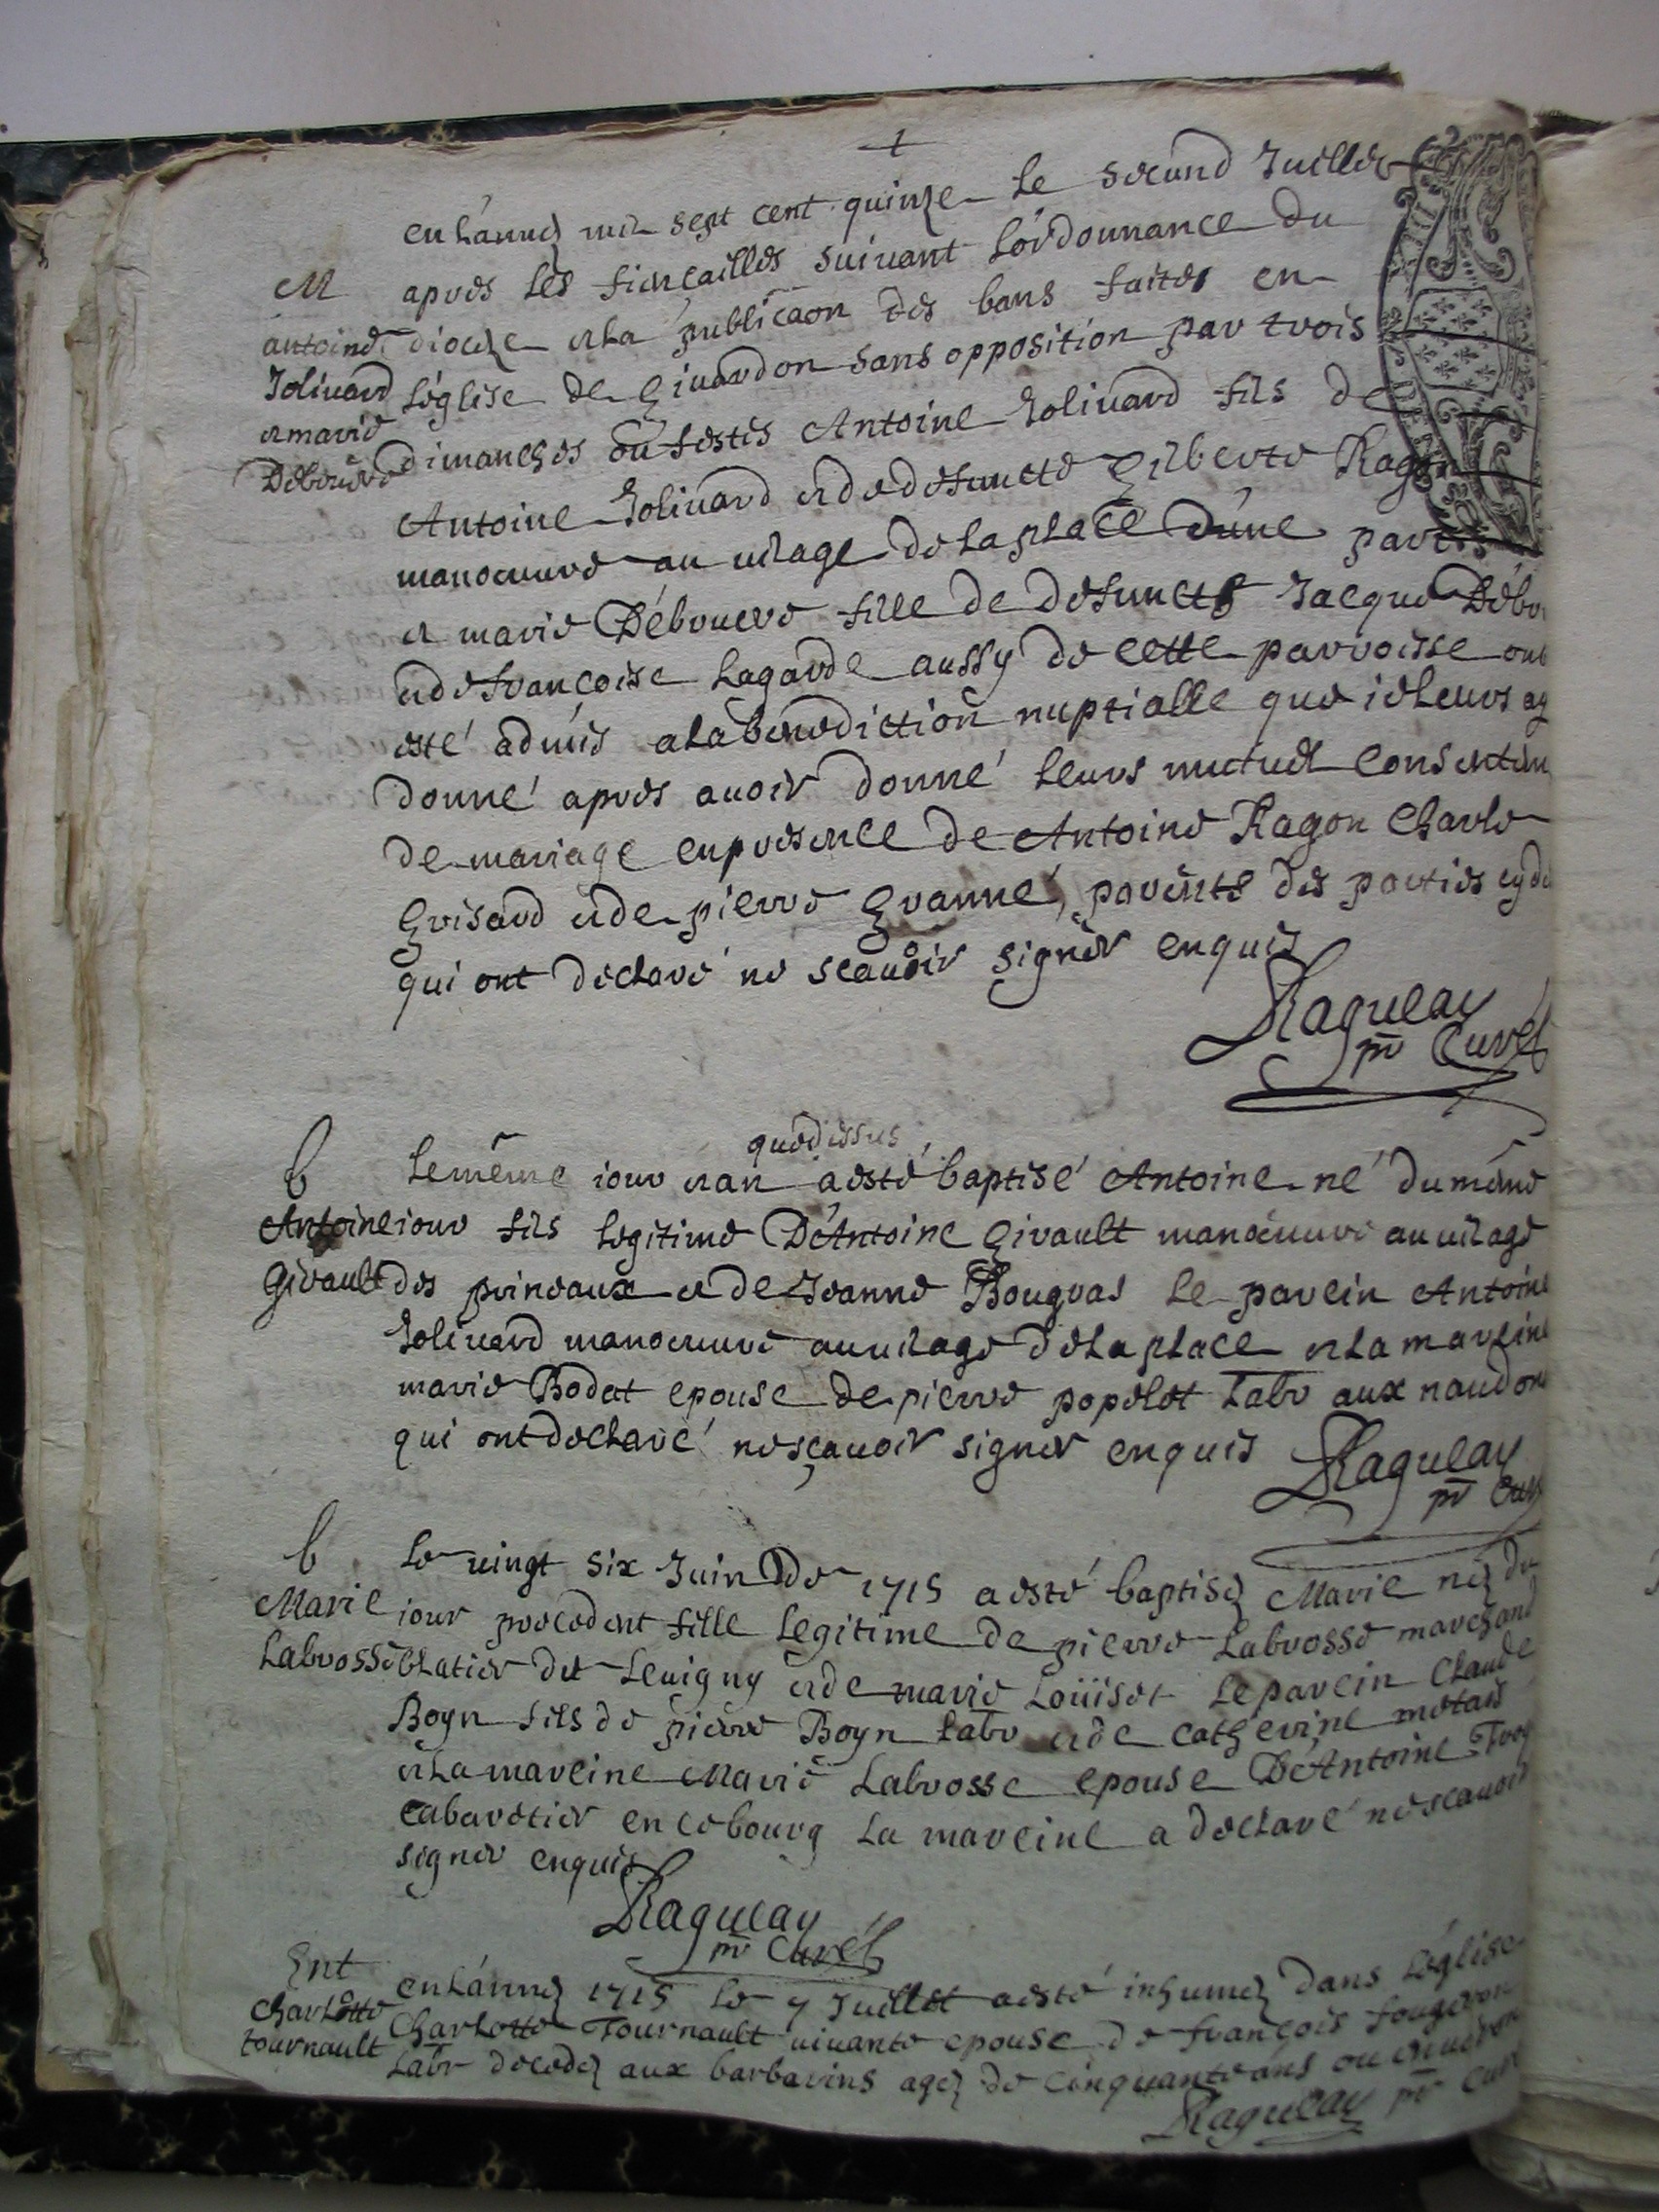 en lánneé mil sept cent quinze le second Juillet
M
apres les fiencailles suivant lórdonnance du
antoine Joliuard et marie Debruere
dioceze et la publicaon des bans faites en
léglise de Giuardon sans opposition par trois
dimanches ou festes Antoine Joliuard fils de
Antoine Joliuard et de defuncte Gilberte Ragon
manoeuure au uilage de la place dúne part
et marie Débruere fille de defuncts Jacque Débr
et de francoise Lagarde aussy de cette parroisse ont
esté admis a la benediction nuptialle que ie leurs ay
donné apres auoir donné leurs mutuel consentem
de mariage en presence de Antoine Ragon Charle
Grisard et de pierre Granné, parents des parties
qui ont declaré ne scauoir signer enquis
Ragueau
pr Curé
b
Antoine Girault
quedessus
le même iour et an a esté baptisé Antoine né du même
iour fils legitime DAntoine Girault manoeuure au uilage
des prineaux et de Jeanne Bougras le parein Antoine
Joliuard manoeuure au uilage de la place et la mareine
marie Bodet epouse de pierre popelet labr aux naudons
qui ont declaré ne sçauoir signer enquis
Ragueau
pr Cur
b
Marie Labrosse
le uingt six Juin de 1715 a esté baptiseé Marie neé du
iour precedent fille legitime de pierre Labrosse marchand
blatier de Leuigny et de marie Loüiset le parein Claude
Boyn fils de pierre Boyn labr et de catherine metais
et la mareine Marie Labrosse epouse DAntoine
cabaretier en ce bourg la mareine a declaré ne scauoir
signer enquis
Ragueau
pr Curé
Ent
Charlotte tournault
en lánneé 1715 le 7 Juillet a esté inhumeé dans léglise
Charlotte Tournault uiuante epouse de françois fougeron
labr decedeé aux barbarins ageé de cinquante ans ou enuiron
Ragueau pr Curé